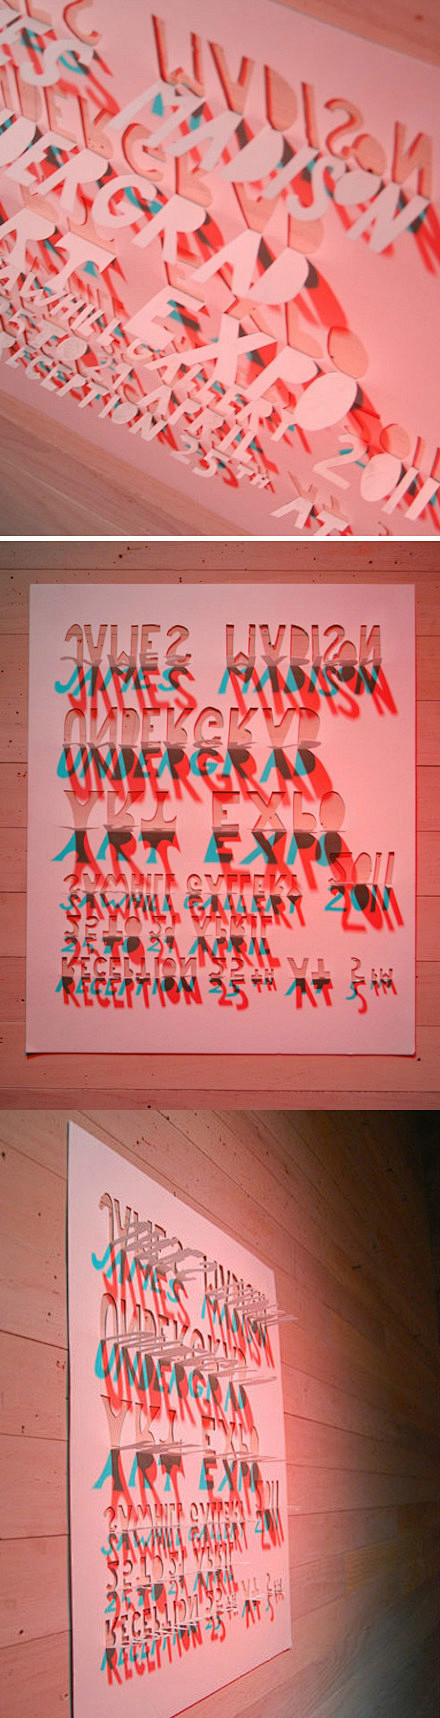 MES MADISON
NDERGRAD
RT EXPO 2011
SAWHILL GALLERY
25 TO 29 APRIL
RECEPTION 25TH AT
JAMES MADISON
UNDERGRAD
ART EXPO
2011
SAWHILL GALLERY
25 TO 29 APRIL
RECEPTION 25TH AT 5PM
JAMES MADISON
UNDERGRAD
ART EXPO
2011
SAWHILL GALLERY
25 TO 29 APRIL
RECEPTION 25TH AT 5PM